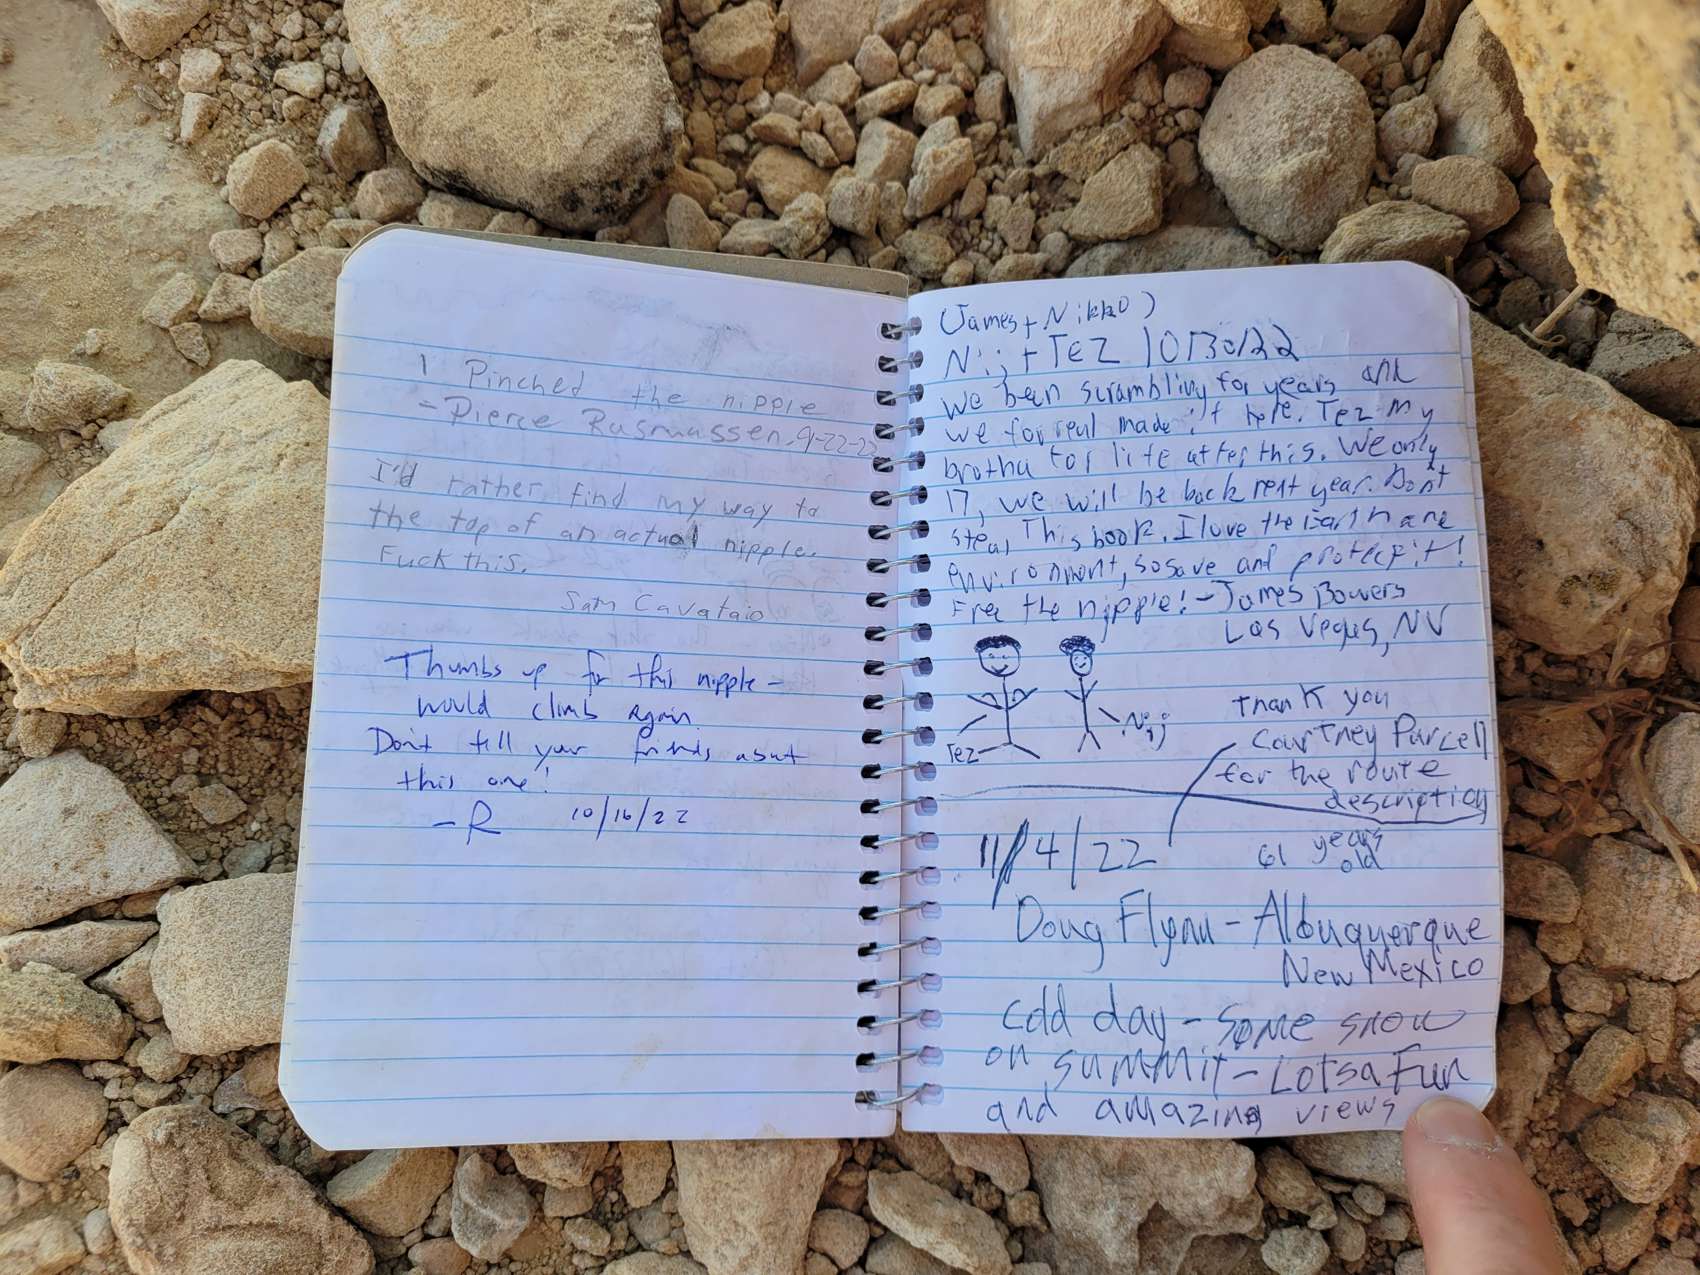 I Pinched the nipple
- Pierce Rasmussen, 9-22-22
I'd rather find my way to
the top of an actual nipple.
Fuck this.
Sam Cavataio
Thumbs up for this nipple -
would climb again
Don't tell your friends about
this one!
- R 10/16/22
(James + Nikko)
Nijj + TEZ 10/30/22
We been scrambling for years and
we for real made it here. Tez my
brotha for life after this. We only
17, we will be back next year. Dont
steal This book. I love the Earth and
environment, so save and protect it!
Free the nipple! - James Bowers
Las Vegas, NV
Tez
Nijj
Thank you
Courtney Purcell
for the route
description
11/4/22
61 years
old
Doug Flynn - Albuquerque
New Mexico
Cold day - some snow
on summit - Lotsa Fun
and amazing views